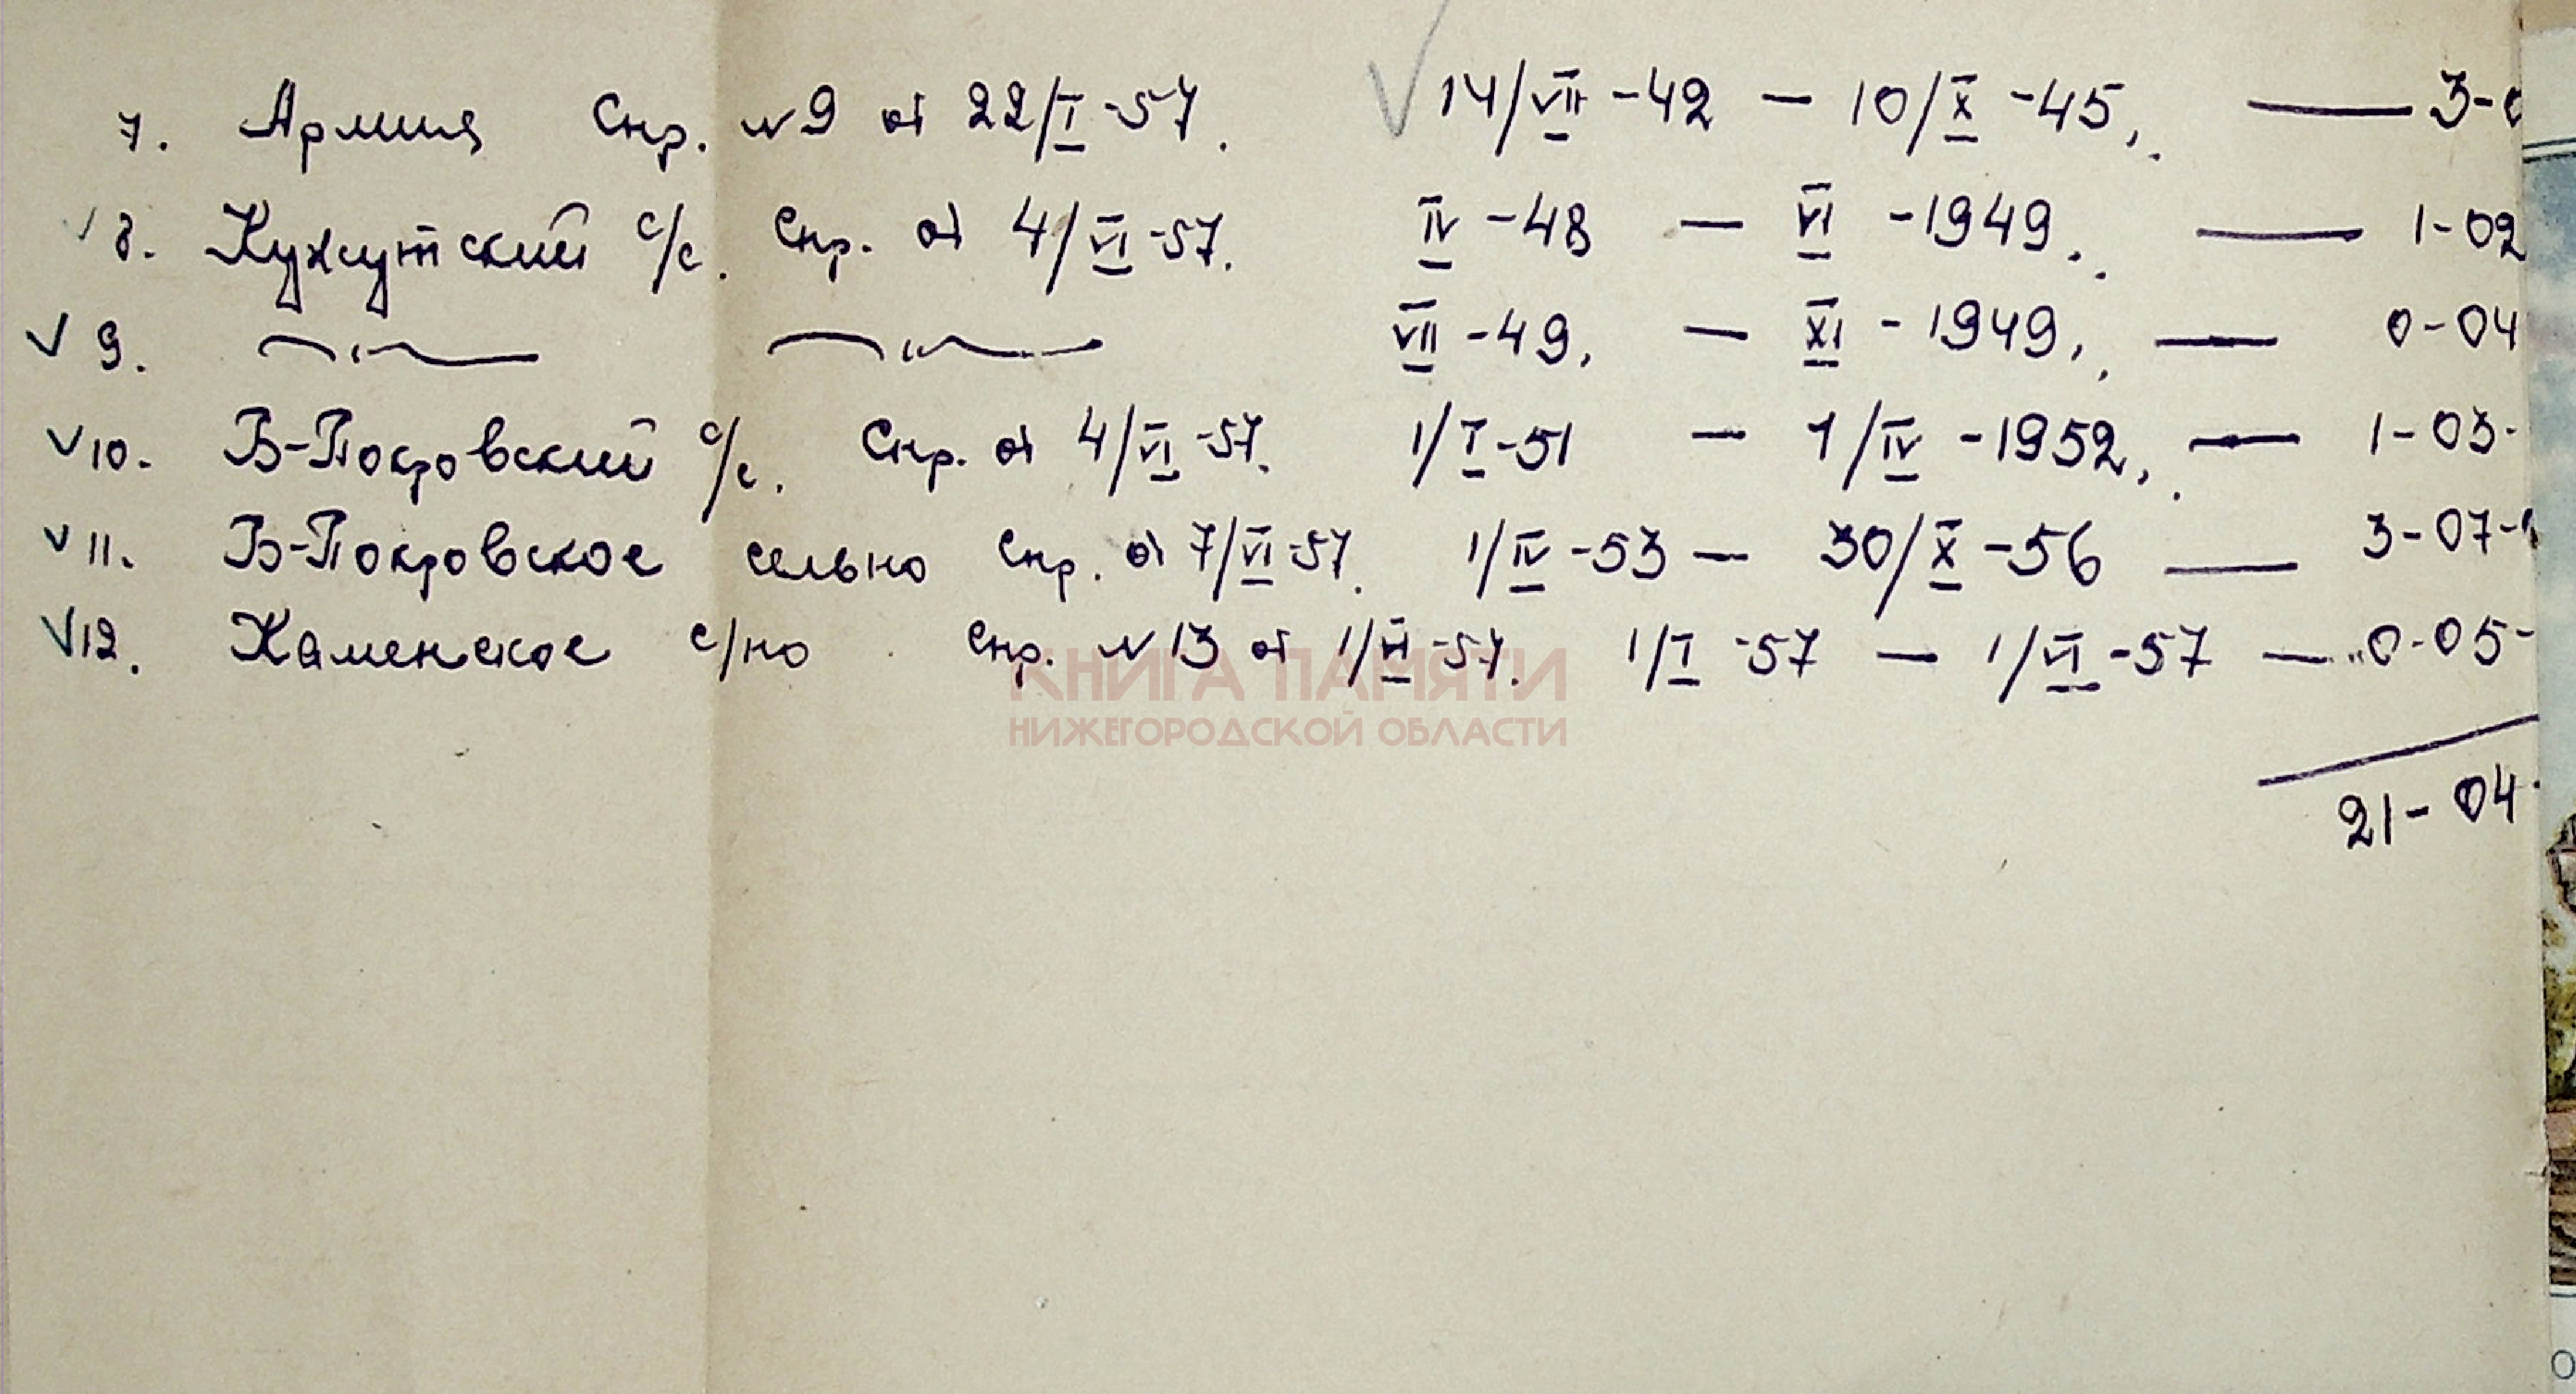 7. Армия Спр. №9 от 22/I-57. √ 14/VII-42 — 10/X-45. — 3-0
√ 8. Кужутский с/с. Спр. от 4/VI-57. IV-48 — VI-1949. — 1-02
√ 9. —"— —"— VII-49. — XI-1949. — 0-04
√ 10. Б-Покровский с/с. Спр. от 4/VI-57. 1/I-51 — 1/IV-1952. — 1-03-
√ 11. Б-Покровское сельпо Спр. от 7/VI-57. 1/IV-53 — 30/X-56 — 3-07-
√ 12. Каменское с/по Спр. №13 от 1/VI-57. 1/I-57 — 1/VI-57 — 0-05-
КНИГА ПАМЯТИ
НИЖЕГОРОДСКОЙ ОБЛАСТИ
21-04-